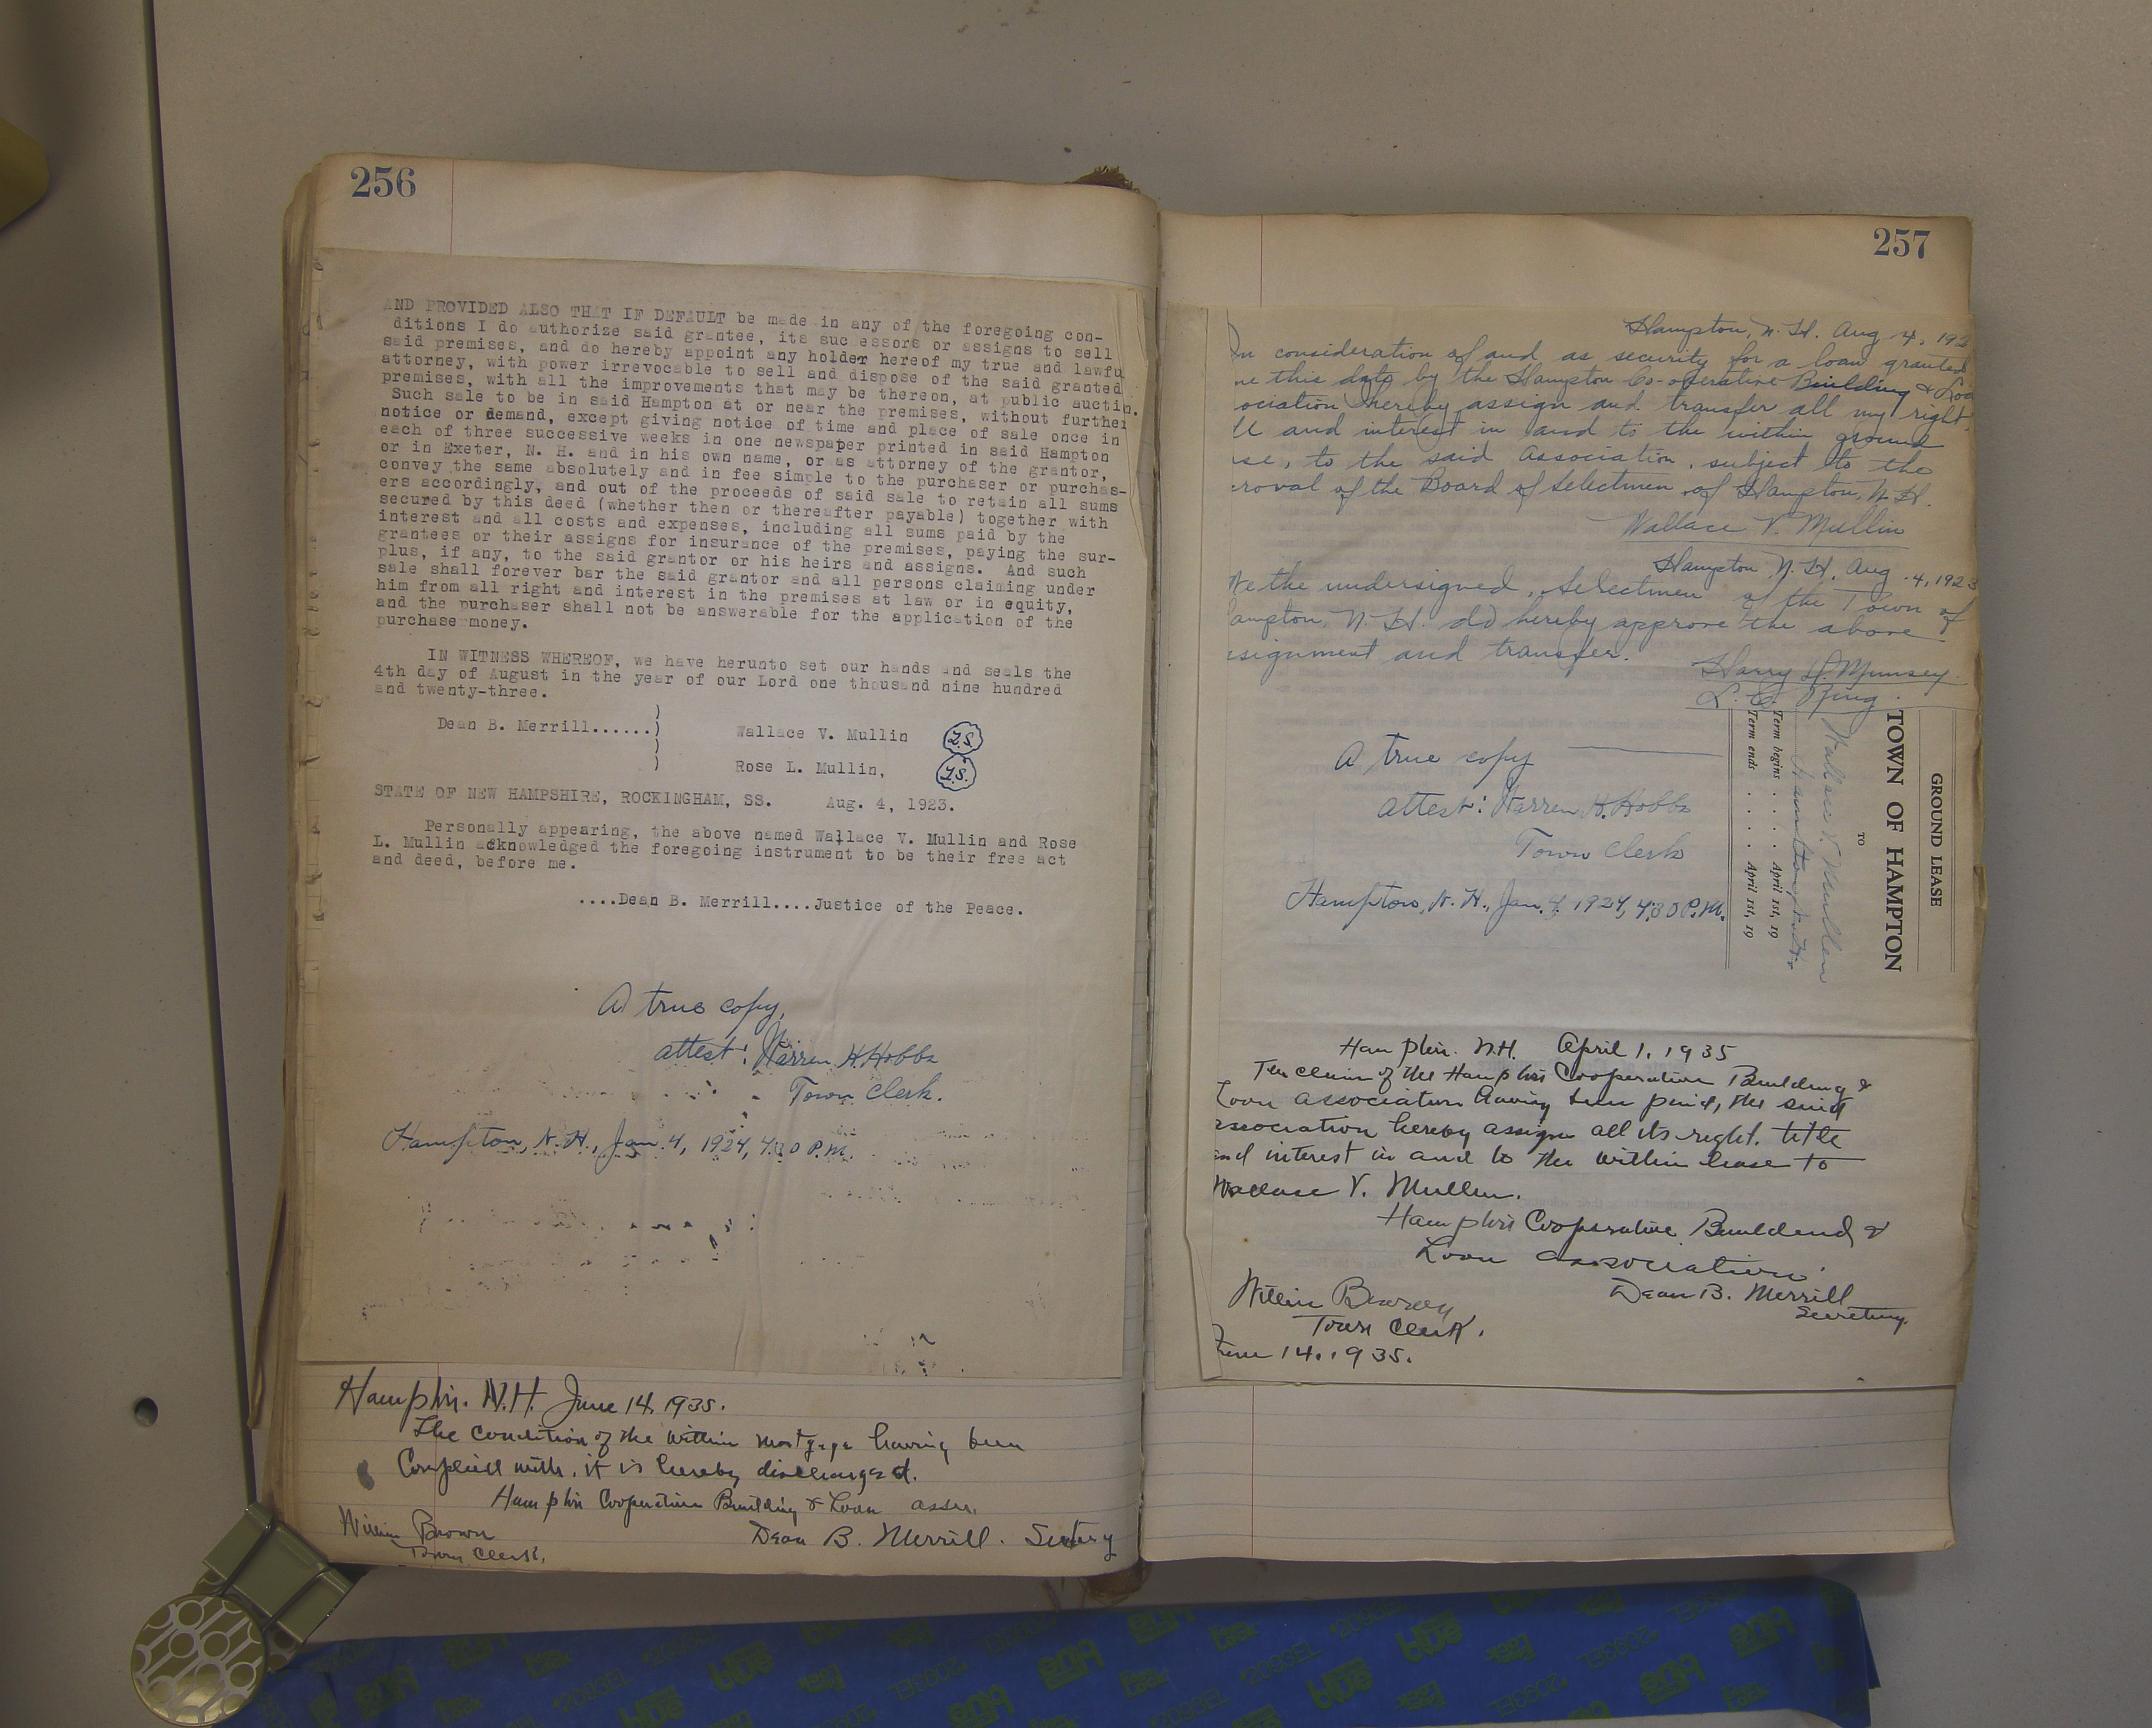 256
AND PROVIDED ALSO THAT IF DEFAULT be made in any of the foregoing con-
ditions I do authorize said grantee, its successors or assigns to sell
said premises, and do hereby appoint any holder hereof my true and lawfu
attorney, with power irrevocable to sell and dispose of the said granted
premises, with all the improvements that may be thereon, at public auctin.
Such sale to be in said Hampton at or near the premises, without further
notice or demand, except giving notice of time and place of sale once in
each of three successive weeks in one newspaper printed in said Hampton
or in Exeter, N. H. and in his own name, or as attorney of the grantor,
convey the same absolutely and in fee simple to the purchaser or purchas-
ers accordingly, and out of the proceeds of said sale to retain all sums
secured by this deed (whether then or thereafter payable) together with
interest and all costs and expenses, including all sums paid by the
grantees or their assigns for insurance of the premises, paying the sur-
plus, if any, to the said grantor or his heirs and assigns. And such
sale shall forever bar the said grantor and all persons claiming under
him from all right and interest in the premises at law or in equity,
and the purchaser shall not be answerable for the application of the
purchase money.
IN WITNESS WHEREOF, we have herunto set our hands and seals the
4th day of August in the year of our Lord one thousand nine hundred
and twenty-three.
Dean B. Merrill......) Wallace V. Mullin L.S.
Rose L. Mullin, L.S.
STATE OF NEW HAMPSHIRE, ROCKINGHAM, SS. Aug. 4, 1923.
Personally appearing, the above named Wallace V. Mullin and Rose
L. Mullin acknowledged the foregoing instrument to be their free act
and deed, before me.
....Dean B. Merrill....Justice of the Peace.
A true copy,
attest: Warren H. Hobbs
Town Clerk.
Hampton, N. H., Jan. 4, 1924, 4:30 P.M.
Hampton. N.H. June 14, 1935.
The condition of the within mortgage having been
Complied with, it is hereby discharged.
Hampton Cooperative Building & Loan assn.
William Brown Dean B. Merrill. Sectary
Town Clerk.
257
Hampton, N. H. Aug 4, 192
In consideration of and as security for a loan granted
me this date by the Hampton Co-operative Building & Loa
ociation hereby assign and transfer all my right,
le and interest in and to the within ground
ase, to the said Association, subject to the
roval of the Board of Selectmen of Hampton, N. H.
Wallace V. Mullin
Hampton, N. H. Aug. 4, 1923
We the undersigned, Selectmen of the Town of
ampton, N. H. do hereby approve the above
signment and transfer.
Harry D. Munsey
L. C. Ring
A true copy
attest: Warren H. Hobbs
Town Clerk
Hampton, N. H., Jan. 4, 1924, 4:30 P.M.
GROUND LEASE
TOWN OF HAMPTON
TO
Wallace V. Mullen
Term begins . . . April 1st, 19
Term ends . . . April 1st, 19
Hampton. N.H. April 1, 1935
The claim of the Hampton Cooperative Building &
Loan Association having been paid, the said
association hereby assign all its right, title
and interest in and to the within lease to
Wallace V. Mullen.
Hampton Cooperative Building &
Loan association.
Dean B. Merrill
Secretary.
William Brown
Town Clerk.
June 14, 1935.